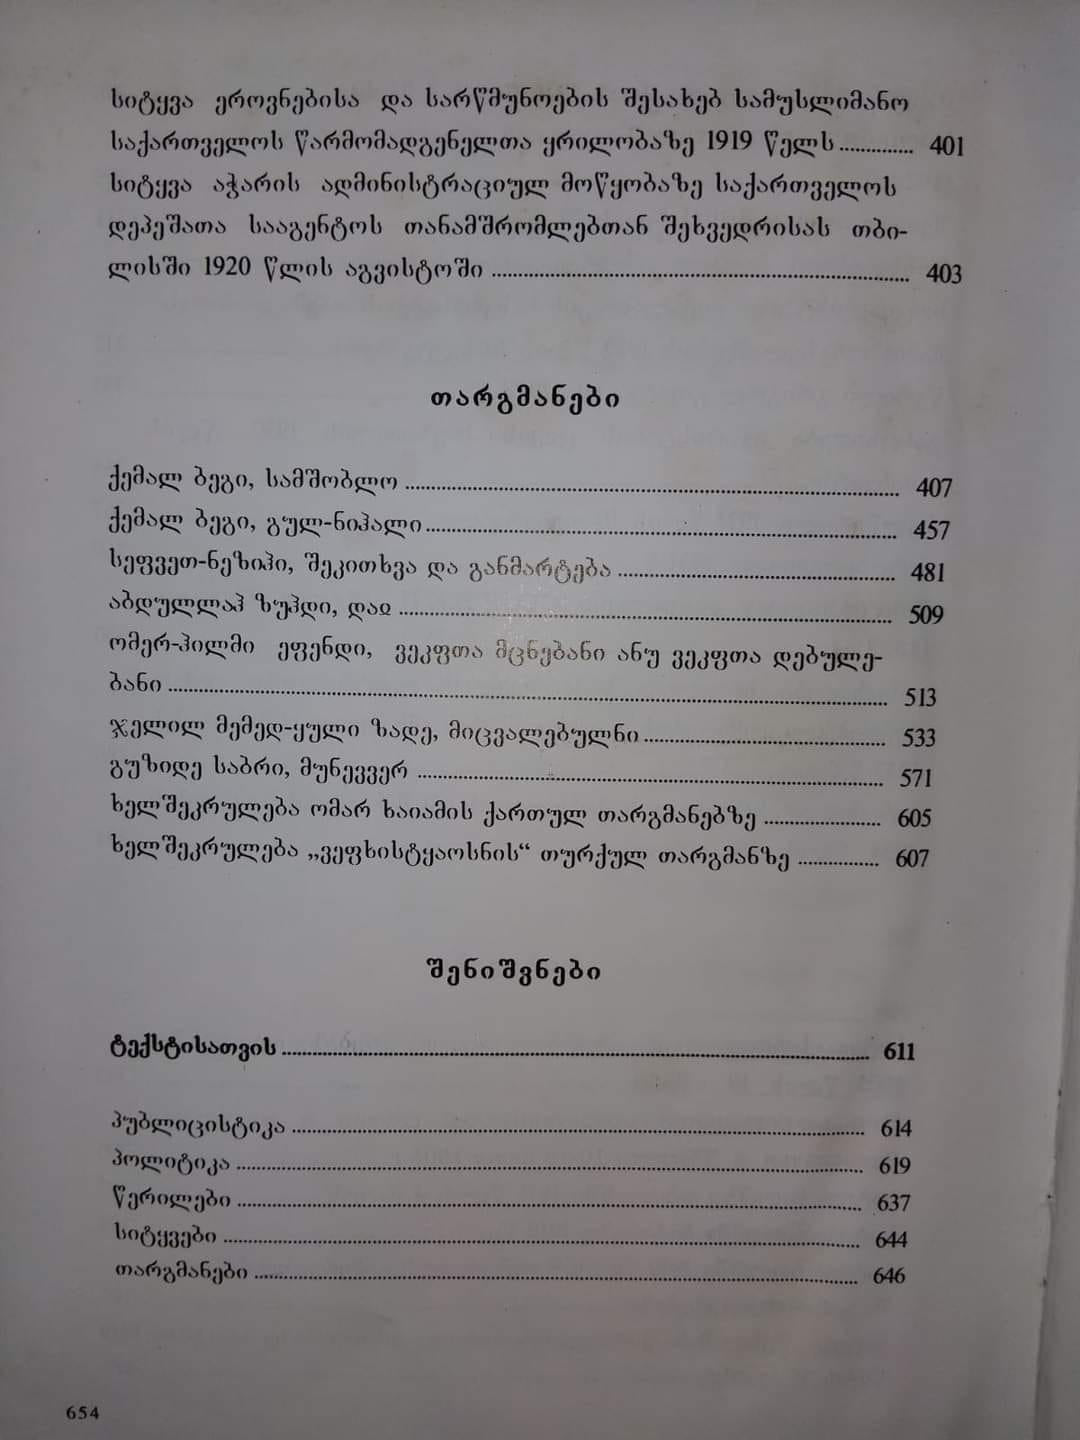 სიტყვა ეროვნებისა და სარწმუნოების შესახებ სამუსლიმანო
საქართველოს წარმომადგენელთა ყრილობაზე 1919 წელს .............. 401
სიტყვა აჭარის ადმინისტრაციულ მოწყობაზე საქართველოს
დეპეშათა სააგენტოს თანამშრომლებთან შეხვედრისას თბი-
ლისში 1920 წლის აგვისტოში .............. 403
თარგმანები
ქემალ ბეგი, სამშობლო .............. 407
ქემალ ბეგი, გულ-ნიჰალი .............. 457
სეფვეთ-ნეზიჰი, შეკითხვა და განმარტება .............. 481
აბდულლაჰ ზუჰდი, დაჲ .............. 509
ომერ-ჰილმი ეფენდი, ვეკფთა მცნებანი ანუ ვეკფთა დებულე-
ბანი .............. 513
ჯელილ მემედ-ყული ზადე, მიცვალებულნი .............. 533
გუზიდე საბრი, მუნევვერ .............. 571
ხელშეკრულება ომარ ხაიამის ქართულ თარგმანებზე .............. 605
ხელშეკრულება „ვეფხისტყაოსნის“ თურქულ თარგმანზე .............. 607
შენიშვნები
ტექსტისათვის .............. 611
პუბლიცისტიკა .............. 614
პოლიტიკა .............. 619
წერილები .............. 637
სიტყვები .............. 644
თარგმანები .............. 646
654